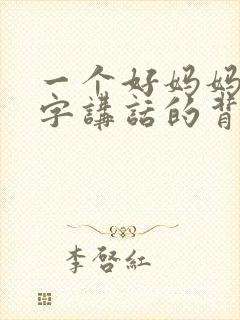 一个好妈妈
字講話的背
李啓紅